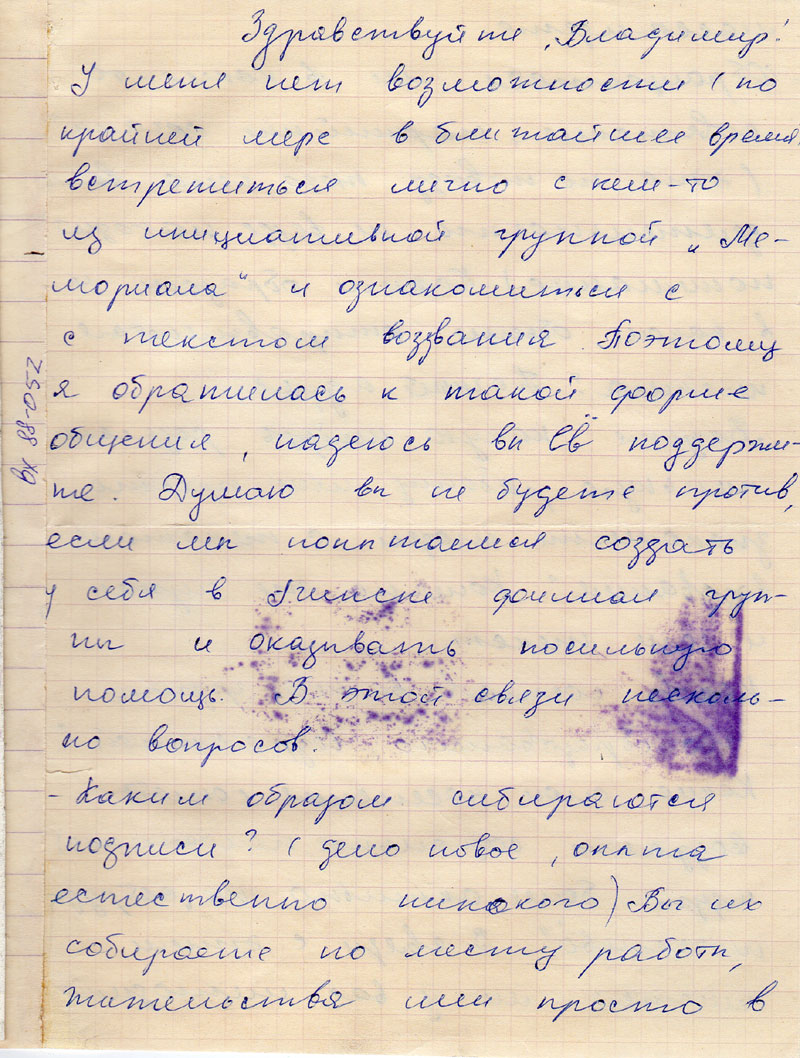 Здравствуйте, Владимир!
У меня нет возможности (по
крайней мере в ближайшее время
встретиться лично с кем-то
из инициативной группой „Ме-
мориала“ и ознакомиться с
с текстом воззвания. Поэтому
я обратилась к такой форме
общения, надеюсь вы её поддержи-
те. Думаю вы не будете против,
если мы попытаемся создать
у себя в Гчинске филиал груп-
пы и оказывать посильную
помощь. В этой связи несколь-
ко вопросов.
- Каким образом сибираются
подписи? (дело новое, опыта
естественно никакого) Вы их
собираете по месту работы,
жительства или просто в
вх 88-052